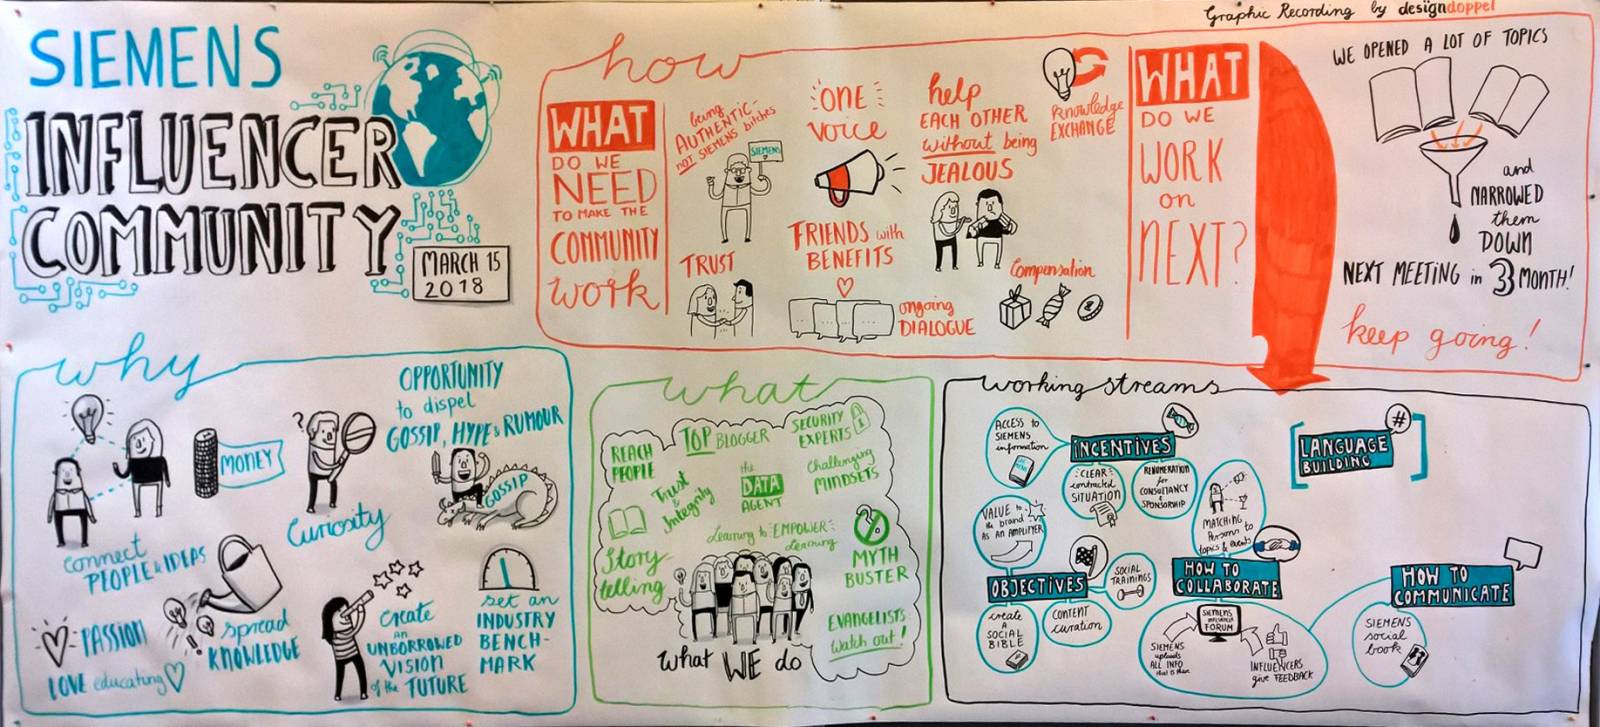 Graphic Recording by designdoppel
SIEMENS
INFLUENCER
COMMUNITY
MARCH 15
2018
how
WHAT
DO WE
NEED
TO MAKE THE
COMMUNITY
work
being
AUTHENTIC
NOT SIEMENS bitches
SIEMENS
TRUST
ONE
VOICE
FRIENDS with
BENEFITS
ongoing
DIALOGUE
help
EACH OTHER
without being
JEALOUS
Knowledge
EXCHANGE
Compensation
WHAT
DO WE
WORK
on
NEXT?
WE OPENED A LOT OF TOPICS
and
NARROWED
them
DOWN
NEXT MEETING in 3 MONTH!
keep going!
why
connect
PEOPLE & IDEAS
MONEY
?
Curiosity
OPPORTUNITY
to dispel
GOSSIP, HYPE & RUMOUR
GOSSIP
PASSION
LOVE educating
spread
KNOWLEDGE
create
an
UNBORROWED
VISION
of the FUTURE
set an
INDUSTRY
BENCH-
MARK
what
REACH
PEOPLE
TOP BLOGGER
SECURITY
EXPERTS
Trust
&
Integrity
the
DATA
AGENT
Challenging
MINDSETS
Learning to EMPOWER
Learning
Story
telling
MYTH
BUSTER
EVANGELISTS
watch out!
what WE do
working streams
ACCESS to
SIEMENS
information
INCENTIVES
CLEAR
contracted
SITUATION
RENUMERATION
for
CONSULTANCY
&
SPONSORSHIP
#
LANGUAGE
BUILDING
VALUE to
the brand
AS AN AMPLIFYER
MATCHING
Persons to
topics & events
OBJECTIVES
SOCIAL
TRAININGS
create
A
SOCIAL
BIBLE
CONTENT
curation
HOW TO
COLLABORATE
SIEMENS
INFLUENCER
FORUM
SIEMENS
uploads
ALL INFO
INFLUENCERS
give FEEDBACK
HOW TO
COMMUNICATE
SIEMENS
social
book